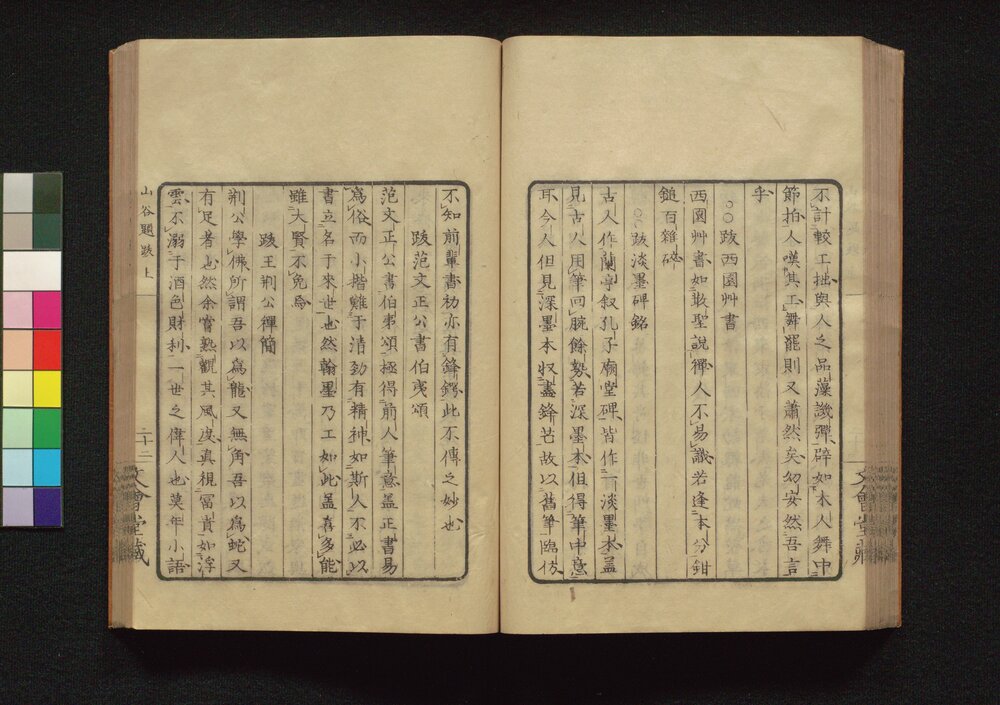 不計較工拙與人之品藻譏彈辟如木人舞中
節拍人嘆其工舞罷則又蕭然矣幼安然吾言
乎
○○跋西園艸書
西園艸書如散聖說禪人不易識若逢本分鉗
鎚百雜碎
○○跋淡墨碑銘
古人作蘭亭叙孔子廟堂碑皆作一淡墨本蓋
見古人用筆回腕餘勢若深墨本但得筆中意
耳今人但見深墨本收盡鋒芒故以舊筆臨仿
不知前輩書初亦有鋒鍔此不傳之妙也
跋范文正公書伯夷頌
范文正公書伯夷頌極得前人筆意蓋正書易
爲俗而小楷難于清勁有精神如斯人不必以
書立名于來世也然翰墨乃工如此蓋喜多能
雖大賢不免焉
跋王荆公禪簡
荆公學佛所謂吾以爲龍又無角吾以爲蛇又
有足者也然余嘗熟觀其風度真視富貴如浮
雲不溺于酒色財利一世之偉人也莫年小語
山谷題跋上
二十二
文會堂藏
文會堂藏